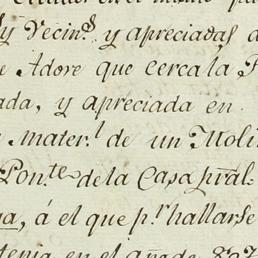 y Vecin.s y apreciadas
Adore que cerca la
ada, y apreciada en
Mater.l de un Moli
Pon.te de la Casa pral.
á el que p.r hallarse
tenia en el año de 807